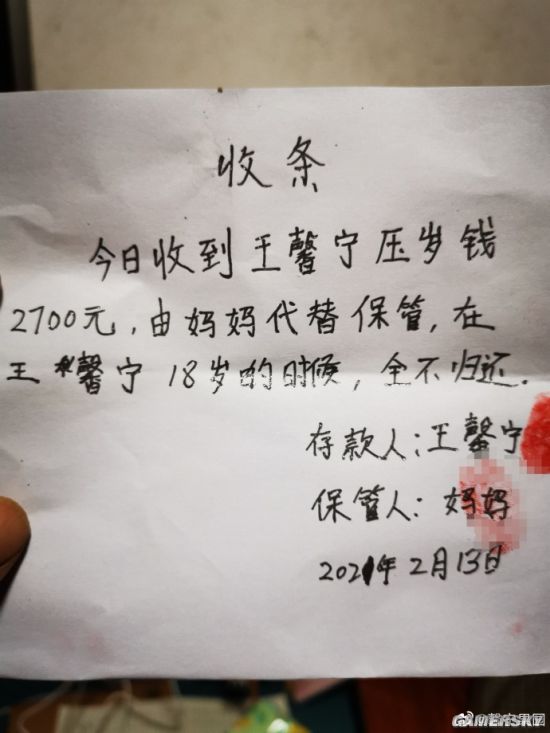 收条
今日收到王馨宁压岁钱
2700元,由妈妈代替保管,在
王馨宁18岁的时候,全不归还.
存款人:王馨宁
保管人:妈妈
2021年2月13日
GAMERSKY